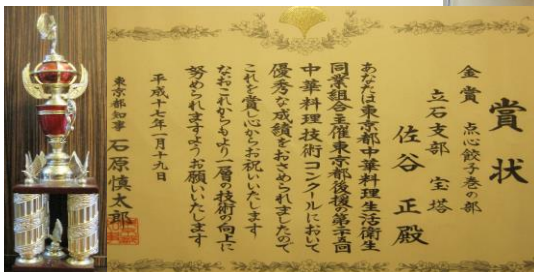 賞状
金賞 点心餃子巻の部
立石支部 宝塔
佐谷 正殿
あなたは東京都中華料理生活衛生
同業組合主催東京都後援の第二十五回
中華料理技術コンクールにおいて
優秀な成績をおさめられましたので
これを賞し心からお祝いいたします
なおこれからもより一層の技術の向上に
努められますようお願いいたします
平成十七年一月十九日
東京都知事 石原慎太郎